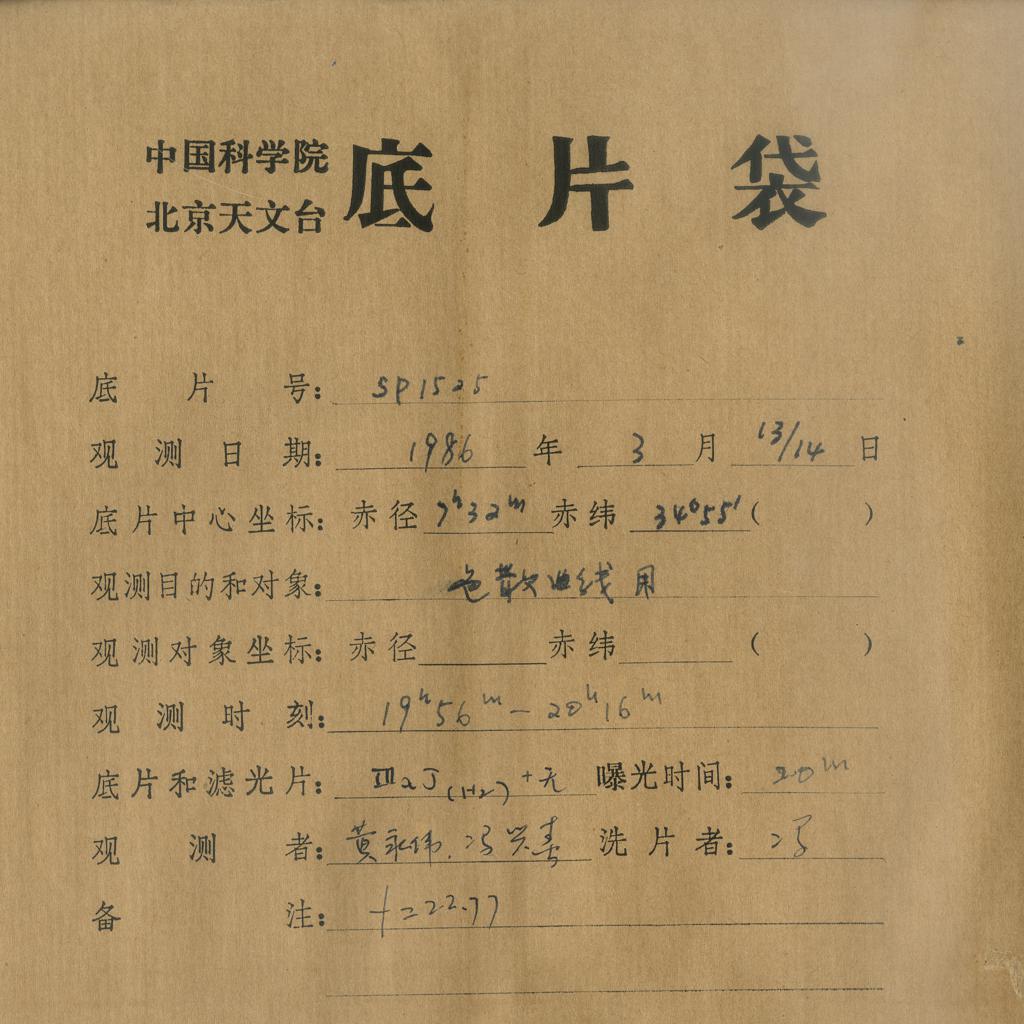 中国科学院
北京天文台
底片袋
底片号: SP1525
观测日期: 1986年3月13/14日
底片中心坐标: 赤径 7ʰ32ᵐ 赤纬 34°55′( )
观测目的和对象: 色散曲线用
观测对象坐标: 赤径 赤纬 ( )
观测时刻: 19ʰ56ᵐ—20ʰ16ᵐ
底片和滤光片: ⅢaJ(H2)+无 曝光时间: 20ᵐ
观测者: 黄永伟.冯兴春 洗片者: 冯
备注: f=22.77